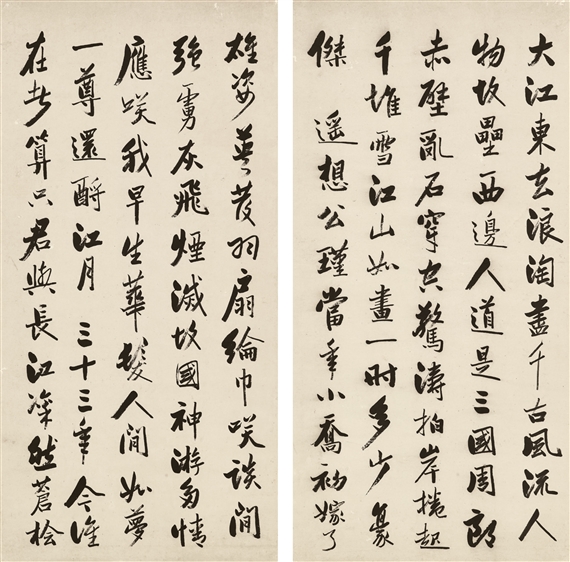 大江東去浪淘盡千古風流人
物故壘西邊人道是三國周郎
赤壁亂石穿空驚濤拍岸捲起
千堆雪江山如畫一時多少豪
傑 遥想公瑾當年小喬初嫁了
雄姿英發羽扇綸巾咲談間
強虜灰飛煙滅故國神游多情
應咲我早生華髮人間如夢
一尊還酹江月 三十三年今誰
存者算只君與長江凜然蒼桧